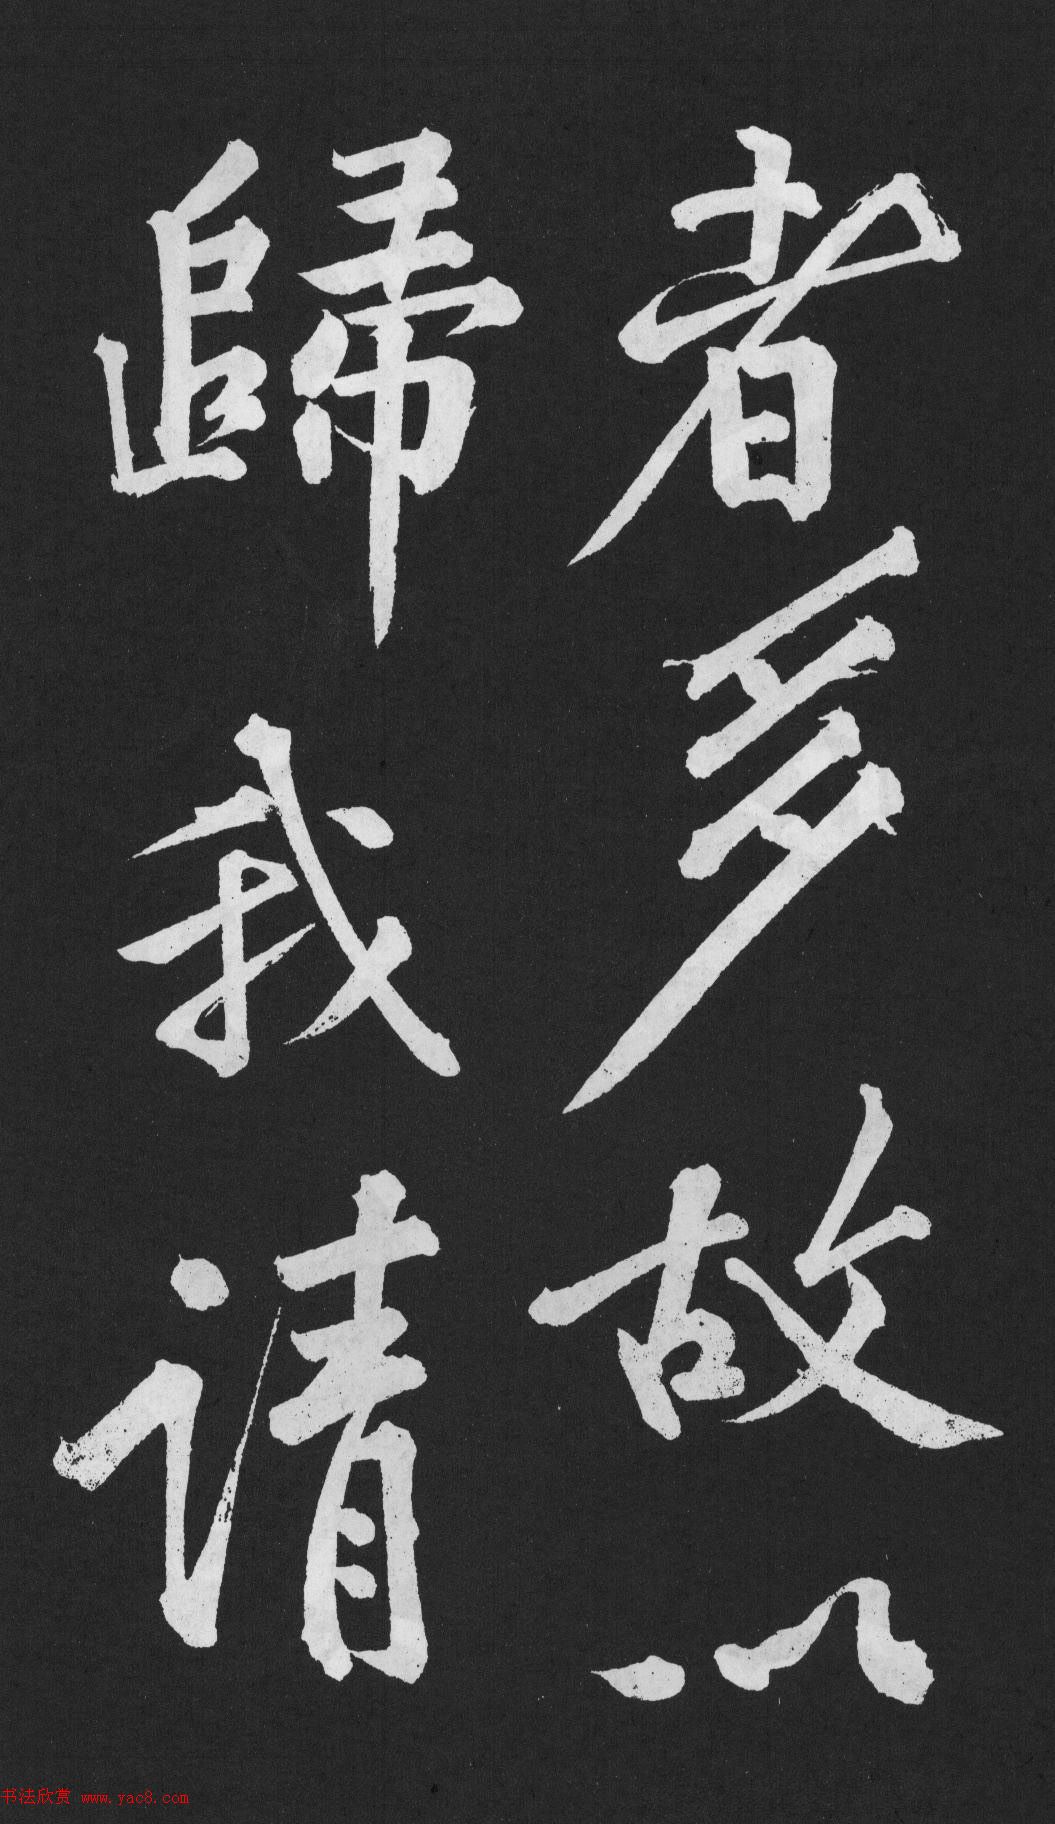 者多故以
歸我請
书法欣赏 www.yac8.com